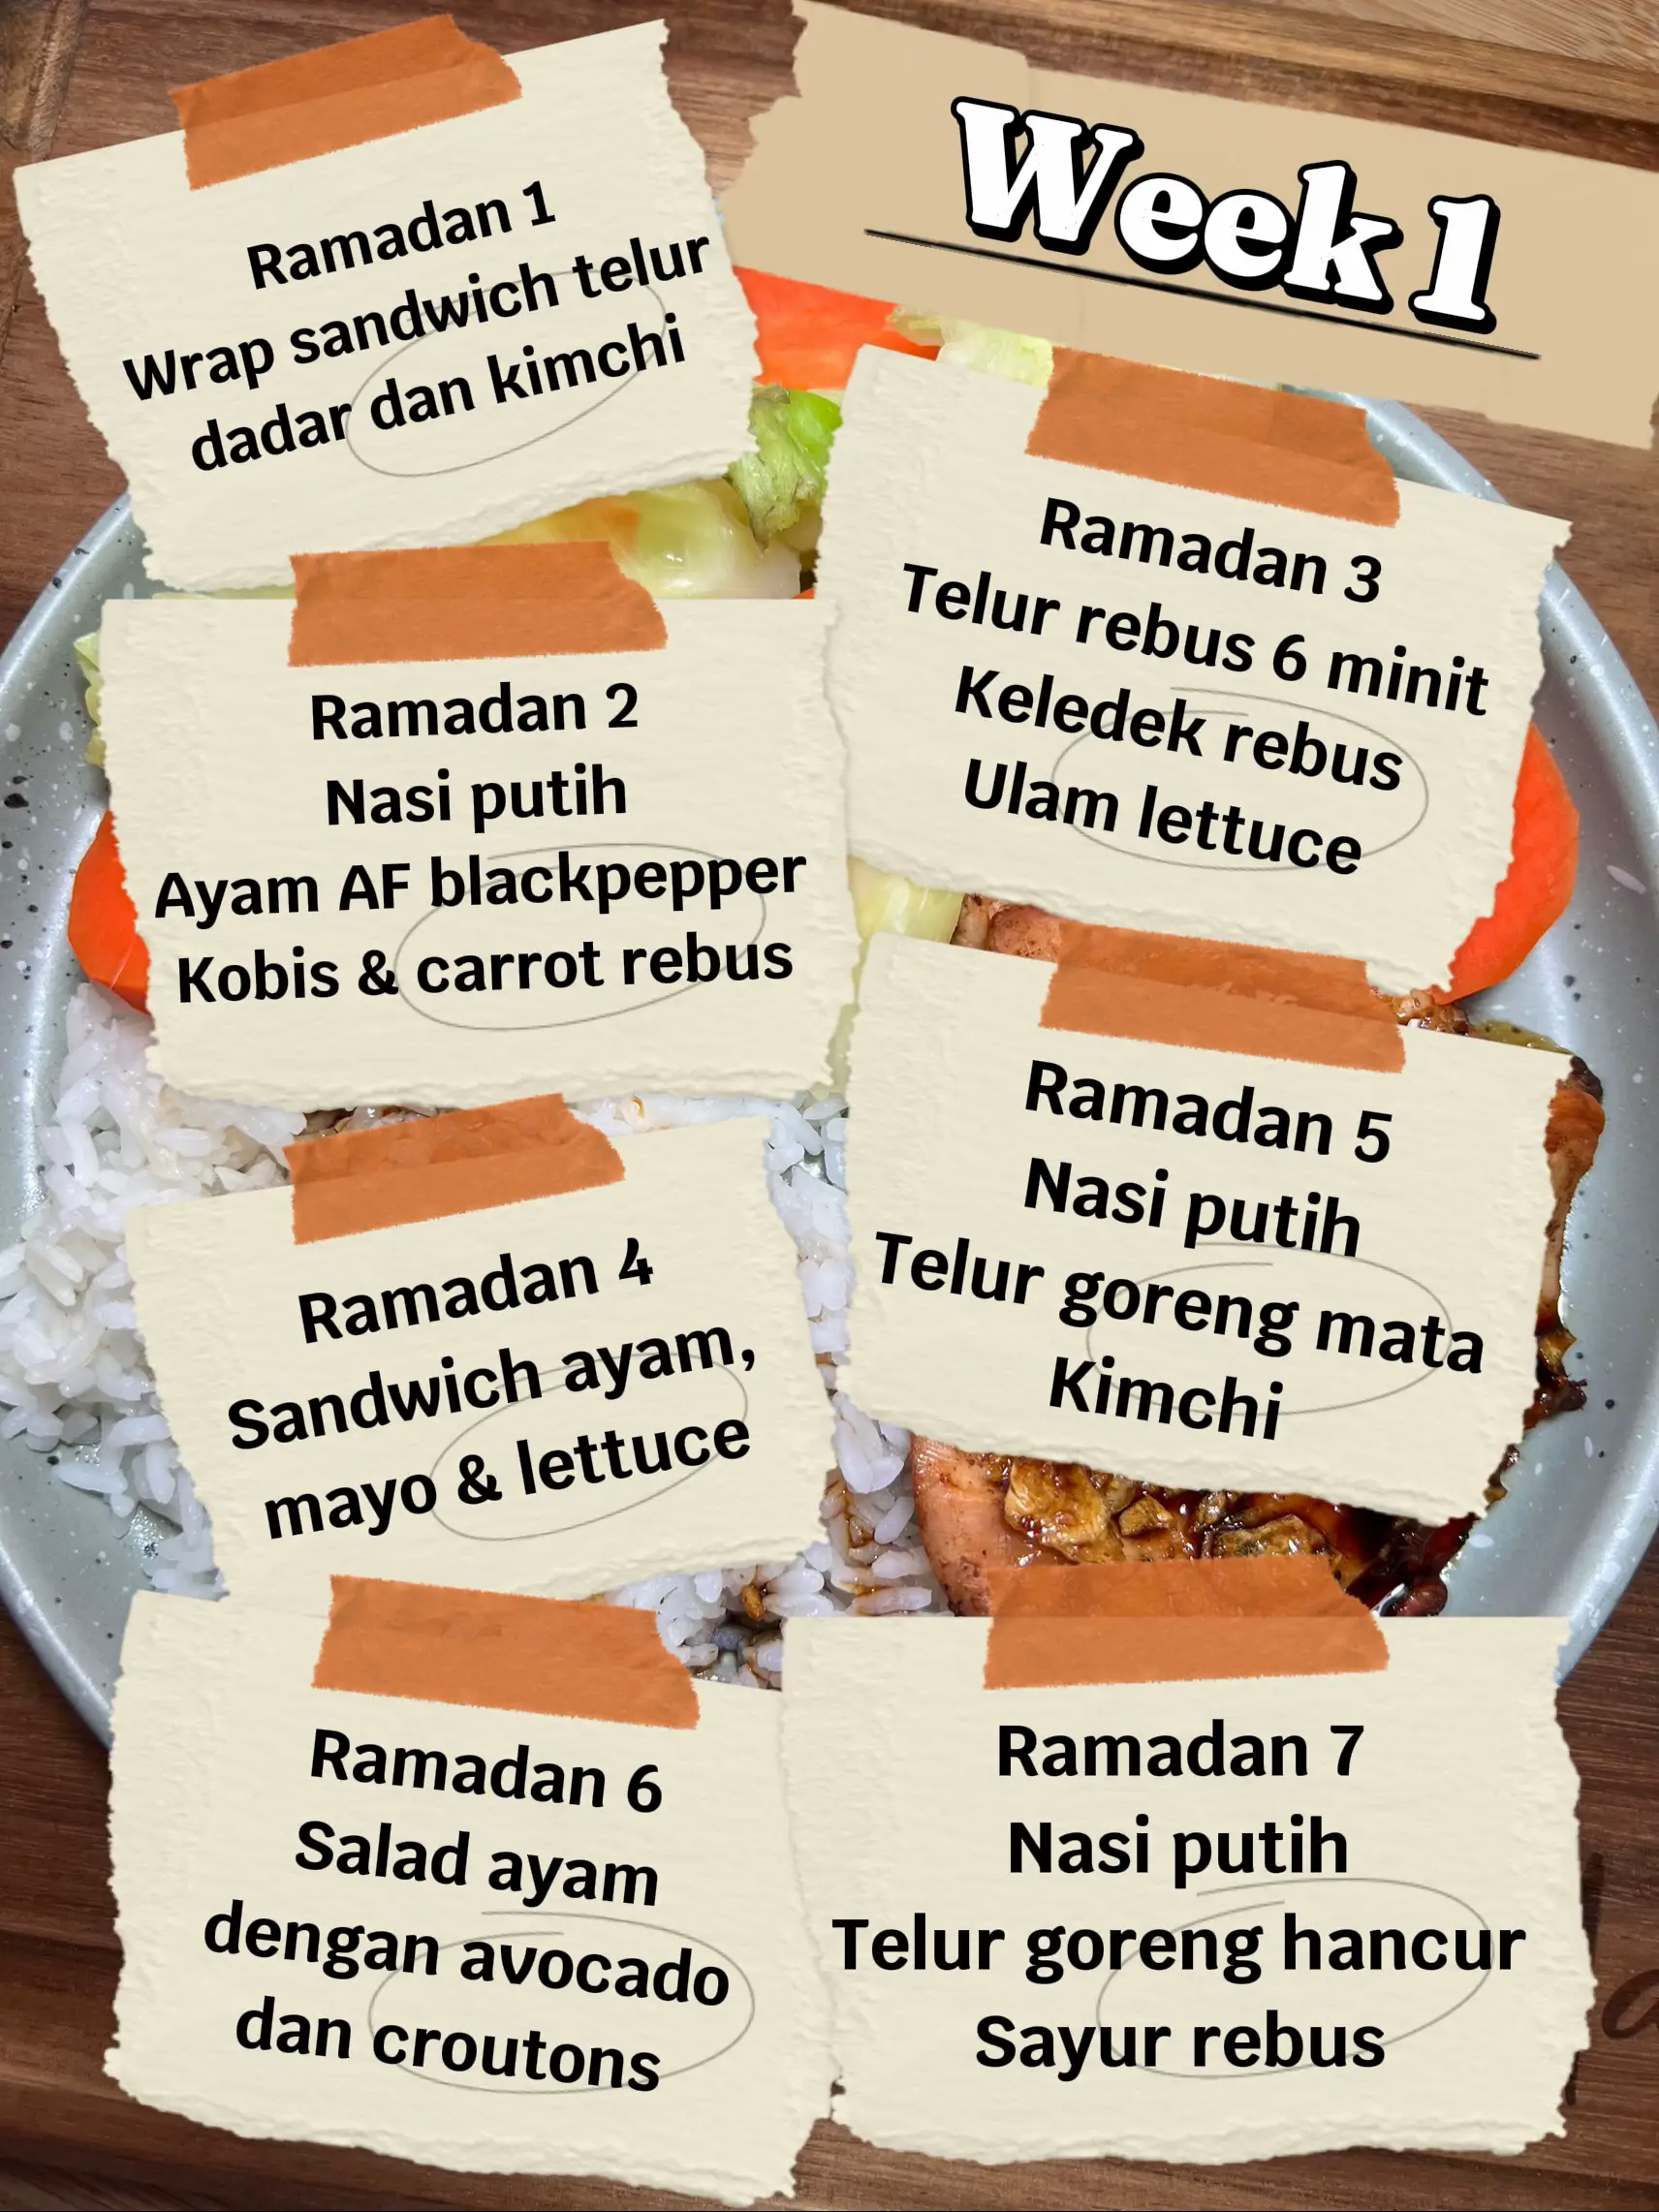 Week 1
Ramadan 1
Wrap sandwich telur
dadar dan kimchi
Ramadan 2
Nasi putih
Ayam AF blackpepper
Kobis & carrot rebus
Ramadan 3
Telur rebus 6 minit
Keledek rebus
Ulam lettuce
Ramadan 4
Sandwich ayam,
mayo & lettuce
Ramadan 5
Nasi putih
Telur goreng mata
Kimchi
Ramadan 6
Salad ayam
dengan avocado
dan croutons
Ramadan 7
Nasi putih
Telur goreng hancur
Sayur rebus